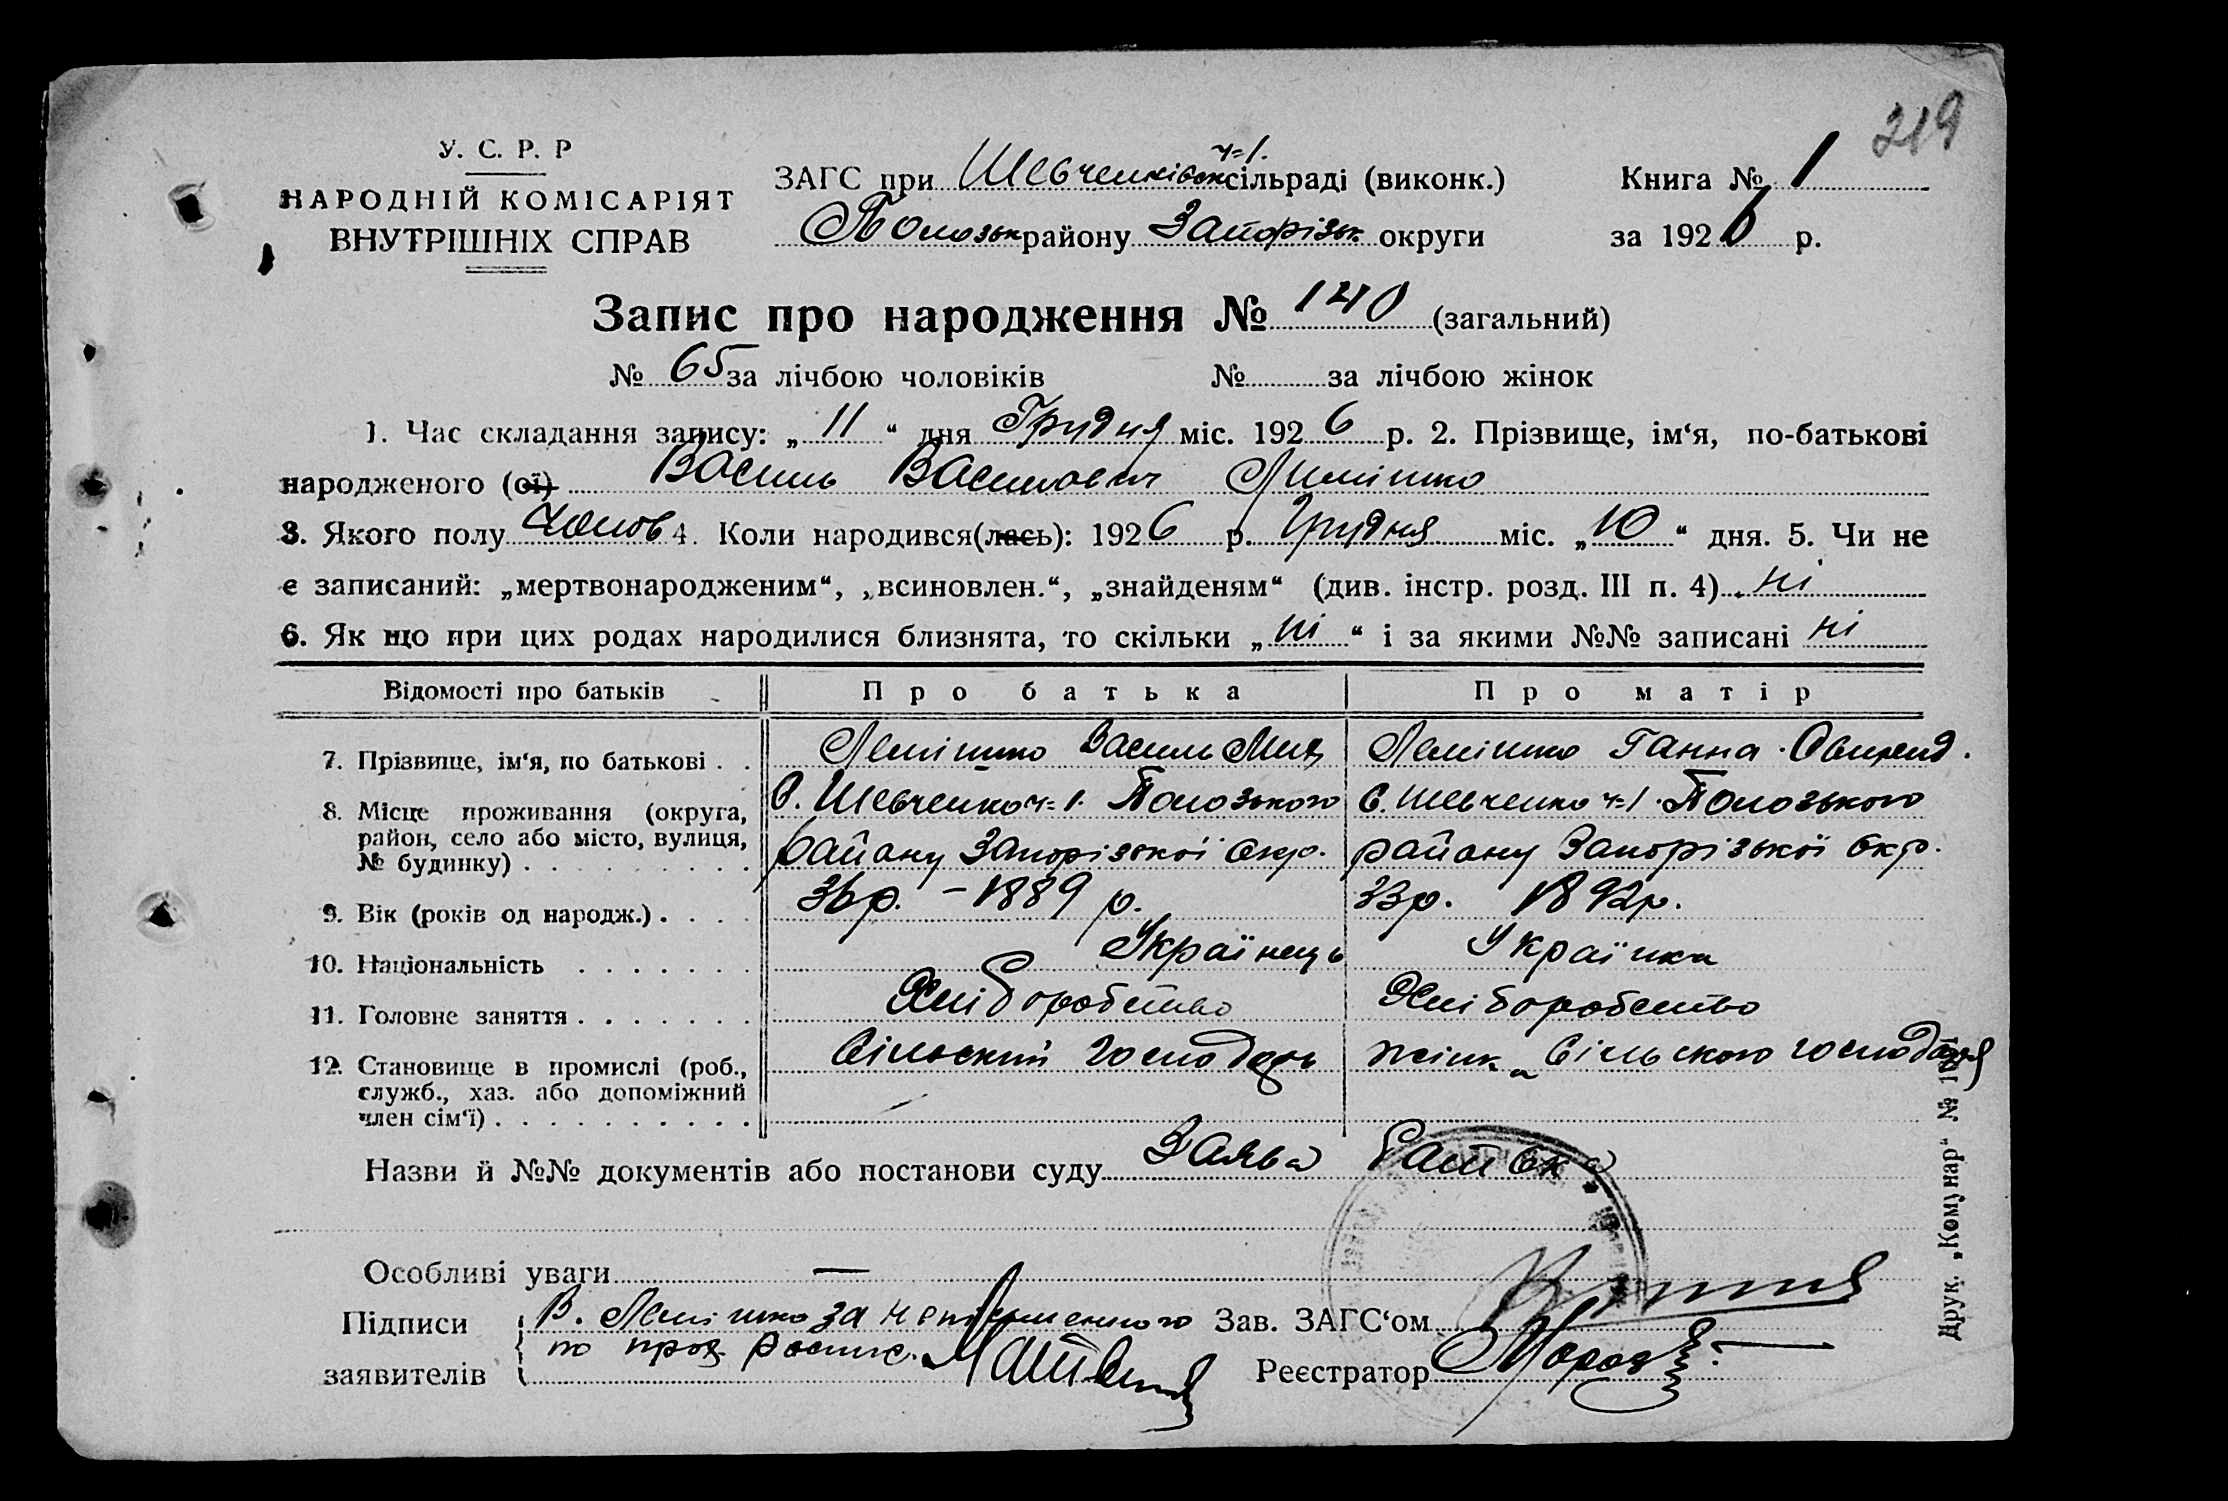 219
У. С. Р. Р
НАРОДНІЙ КОМІСАРІЯТ
ВНУТРІШНІХ СПРАВ
ч=1.
ЗАГС при Шевченківськ сільраді (виконк.) Книга № 1
Полозьк району Запорізьк. округи за 1926 р.
Запис про народження № 140 (загальний)
№ 65 за лічбою чоловіків № за лічбою жінок
1. Час складання запису: „ 11 “ дня Грудня міс. 1926 р. 2. Прізвище, ім‘я, по-батькові
народженого (ої) Василь Васильович Лемішко
3. Якого полу Чолов 4. Коли народився(лась): 1926 р. Грудня міс. „ 10 “ дня. 5. Чи не
є записаний: „мертвонародженим“, „всиновлен.“, „знайденям“ (див. інстр. розд. III п. 4) ні
6. Як що при цих родах народилися близнята, то скільки „ ні “ і за якими №№ записані ні
Відомості про батьків Про батька Про матір
7. Прізвище, ім‘я, по батькові . . Лемішко Василь Мик Лемішко Ганна Свирид.
8. Місце проживання (округа, С. Шевченко ч=1. Полозького С. Шевченко ч=1. Полозького
район, село або місто, вулиця, району Запорізької окр. району Запорізької окр.
№ будинку) . . . . . . . . .
9. Вік (років од народж.) . . . . 36 р. – 1889 р. 33 р. 1892 р.
10. Національність . . . . . . . Українець Українка
11. Головне заняття . . . . . . . Хліборобство Хліборобство
12. Становище в промислі (роб., Сільский господарь жінка сільського господаря
служб., хаз. або допоміжний
член сім‘ї) . . . . . . . . . . .
Назви й №№ документів або постанови суду Заява Батька
Особливі уваги —
Підписи В. Лемішко за неписьменного Зав. ЗАГС‘ом
заявителів по прох. роспис. Реєстратор
Друк. „Комунар“ №